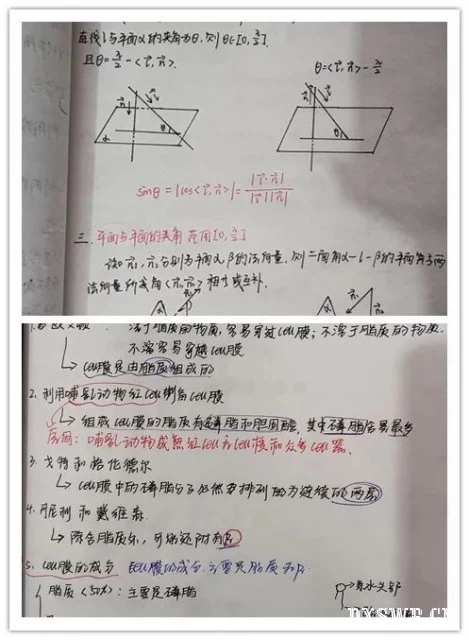 直线l与平面α的夹角为θ，则θ∈[0, π/2].
且θ=π/2-<l, n>.
θ=<l, n>-π/2
sinθ=|cos<l, n>|=|l·n|/|l||n|
三. 平面与平面的夹角 范围[0, π/2]
设n₁, n₂分别为平面α, β的法向量, 则二面角α-l-β的平面角与两
法向量所成角<n₁, n₂>相等或互补.
溶于脂质的物质, 容易穿过cell膜; 不溶于脂质的物质,
不容易穿过cell膜
cell膜是由脂质组成的
2. 利用哺乳动物红cell制备cell膜
组成cell膜的脂质有磷脂和胆固醇, 其中磷脂含量最多
原因: 哺乳动物成熟红cell无cell核和众多cell器.
3. 戈特和格伦德尔
cell膜中的磷脂分子必然排列为连续的两层
4. 丹尼利和戴维森
除含脂质外, 可能还附有
5. cell膜的成分
脂质(50%): 主要是磷脂
亲水头部